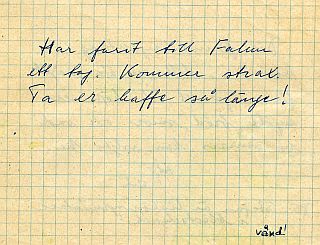 Har farit till Falun
ett tag. Kommer strax.
Ta er kaffe så länge!
vänd!